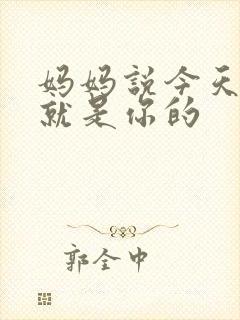 妈妈説今天
就是你的
郭全中